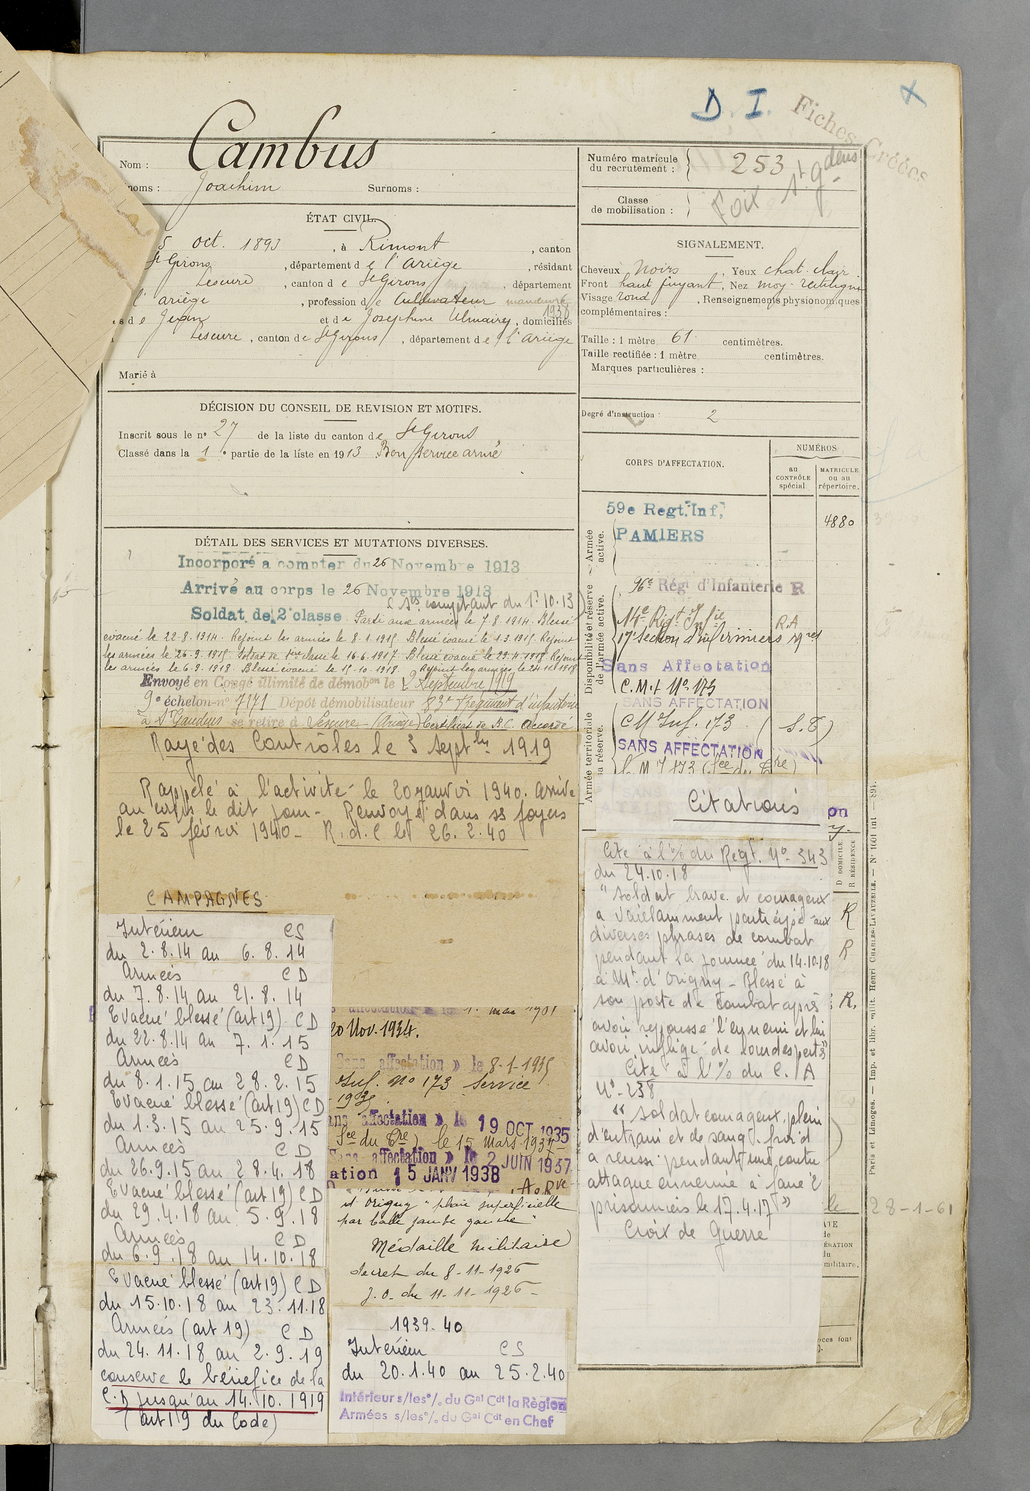 D. I.
Fiches Créées
Nom : Cambus
noms : Joachim Surnoms :
Numéro matricule du recrutement : 253
Foix St Gdens
Classe de mobilisation :
ÉTAT CIVIL.
5 oct. 1893, à Rimont, canton
St Girons, département de l'Ariège, résidant
Lescure, canton de St Girons, département
l'ariège, profession de Cultivateur
1938
s de Jean et de Josephine, domiciliés
Lescure, canton de St Girons, département de l'Ariège
Marié à
SIGNALEMENT.
Cheveux noirs, Yeux chat. clair
Front haut fuyant, Nez moy. rectiligne
Visage rond, Renseignements physionomiques
complémentaires :
Taille : 1 mètre 61 centimètres.
Taille rectifiée : 1 mètre centimètres.
Marques particulières :
Degré d'instruction : 2
DÉCISION DU CONSEIL DE REVISION ET MOTIFS.
Inscrit sous le n° 27 de la liste du canton de St Girons
Classé dans la 1e partie de la liste en 1913 Bon service armé
CORPS D'AFFECTATION.
NUMÉROS
au CONTRÔLE spécial.
MATRICULE ou au répertoire.
Armée active.
59e Regt. Inf.
PAMIERS
4880
Disponibilité et réserve de l'armée active.
Régt d'Infanterie R
14e Régt Inf ie
17e Section d'infirmiers R.A
Sans Affectation
C. M. I N° 173
SANS AFFECTATION
Armée territoriale sa réserve.
C M Inf. 173 (S.E)
SANS AFFECTATION
DÉTAIL DES SERVICES ET MUTATIONS DIVERSES.
Incorporé à compter du 26 Novembre 1913
Arrivé au corps le 26 Novembre 1913
(Ses comptant du 1.10.13)
Soldat de 2e classe. Parti aux armées le 7.8.1914. Blessé
évacué le 22.8.1914. Rejoint les armées le 8.1.1915. Blessé évacué le 1.3.1915. Rejoint
les armées le 26.9.1915. Soldat de 1ère classe le 16.6.1917. Blessé évacué le 29.4.1918. Rejoint
les armées le 6.9.1918. Blessé évacué le 15.10.1918. Rejoint les armées le 24.11.1918
Envoyé en Congé illimité de démobon le 2 Septembre 1919
9e échelon n° 7171 Dépôt démobilisateur 83e Régiment d'infanterie
à St Gaudens se retire à Lescure (Ariège) Certificat de B.C. Accordé
Rayé des Contrôles le 3 Septbre 1919
Rappelé à l'activité le 20 janvier 1940. Arrivé
au corps le dit jour. Renvoyé dans ses foyers
le 25 février 1940 - R.d.C le 26.2.40
CAMPAGNES
Intérieur CS
du 2.8.14 au 6.8.14
Armées CD
du 7.8.14 au 21.8.14
Evacué blessé (art 19) CD
du 22.8.14 au 7.1.15
Armées CD
du 8.1.15 au 28.2.15
Evacué blessé (art 19) CD
du 1.3.15 au 25.9.15
Armées CD
du 26.9.15 au 28.4.18
Evacué blessé (art 19) CD
du 29.4.18 au 5.9.18
Armées CD
du 6.9.18 au 14.10.18
Evacué blessé (art 19) CD
du 15.10.18 au 23.11.18
Armées (art 19) CD
du 24.11.18 au 2.9.19
conserve le bénéfice de la
C.D jusqu'au 14.10.1919
(art 19 du Code)
20 Nov. 1934.
Sans affectation » le 8-1-1935
Inf. N° 173 Service
ans affectation » le 19 OCT 1935
Sce du Tre) le 15 mars 1937
Sans affectation » le 2 JUIN 1937
ation 15 JANV 1938
et Origny "plaie superficielle
par balle jambe gauche"
Médaille Militaire
décret du 8-11-1926
J.O. du 11-11-1926
1939-40
Intérieur CS
du 20.1.40 au 25.2.40
Intérieur s/les °/. du Gal Cdt la Région
Armées s/les °/. du Gal Cdt en Chef
Citations
Cité à l'% du Régt. N° 343
du 24.10.18
"Soldat brave et courageux
a vaillamment participé aux
diverses phrases de combat
pendant la journée du 14.10.18
à Mt. d'Origny - Blessé à
son poste de combat après
avoir repoussé l'ennemi et lui
avoir infligé de lourdes pertes"
Cité à l'% du C./A
N° 238
"Soldat courageux, plein
d'entrain et de sang-froid
a réussi pendant une contre
attaque ennemie à faire 2
prisonniers le 17.4.17"
Croix de Guerre
D DOMICILE
R RÉSIDENCE
R
R
R.
28-1-61
Paris et Limoges. — Imp. et libr. milit. Henri CHARLES-LAVAUZELLE. — N° 1601 int